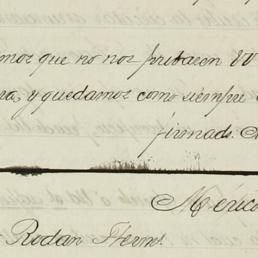 mos que no nos priben VV
ra, y quedamos como siempre
firmado.
Mexico
Rodan Herms.